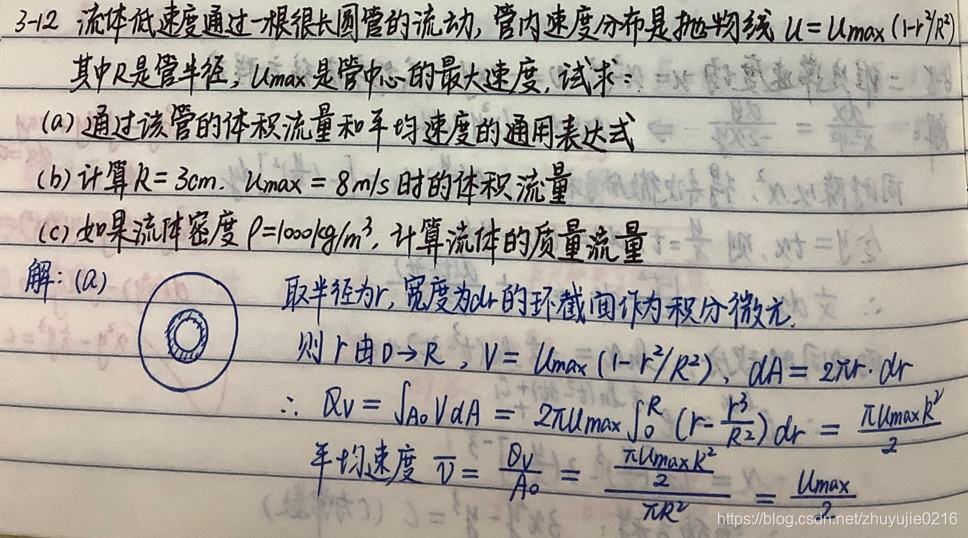 3-12 流体低速度通过一根很长圆管的流动,管内速度分布是抛物线 u = umax (1-r²/R²)
其中R是管半径,umax是管中心的最大速度,试求:
(a) 通过该管的体积流量和平均速度的通用表达式
(b) 计算R=3cm. umax = 8m/s 时的体积流量
(c) 如果流体密度 ρ=1000kg/m³, 计算流体的质量流量
解: (a) 取半径为r, 宽度为dr的环截面作为积分微元.
则 r 由 0→R, V = Umax (1-r²/R²), dA = 2πr·dr
∴ Qv = ∫A₀ VdA = 2πUmax ∫₀ᴿ (r - r³/R²) dr = πUmaxR²/2
平均速度 v̄ = Qv/A₀ = (πUmaxR²/2)/(πR²) = Umax/2
https://blog.csdn.net/zhuyujie0216